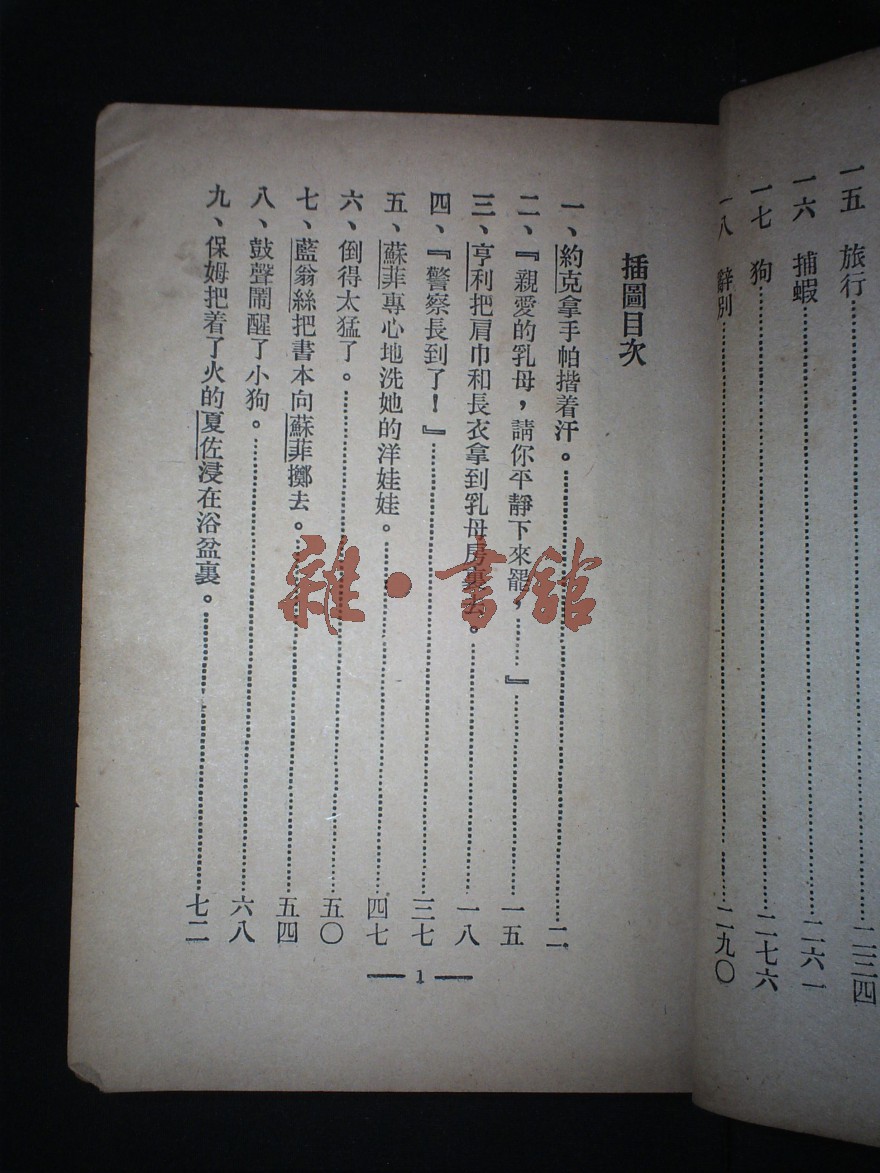 一五　旅行……二三四
一六　捕蝦……二六一
一七　狗……二七六
一八　辭別……二九〇
插圖目次
一、約克拿手帕揩着汗。……二
二、『親愛的乳母，請你平靜下來罷，……』……一五
三、亨利把肩巾和長衣拿到乳母房裏去。……一八
四、『警察長到了！』……三七
五、蘇菲專心地洗她的洋娃娃。……四七
六、倒得太猛了。……五〇
七、藍翁絲把書本向蘇菲擲去。……五四
八、鼓聲鬧醒了小狗。……六八
九、保姆把着了火的夏佐浸在浴盆裏。……七二
— 1 —
雜·書館